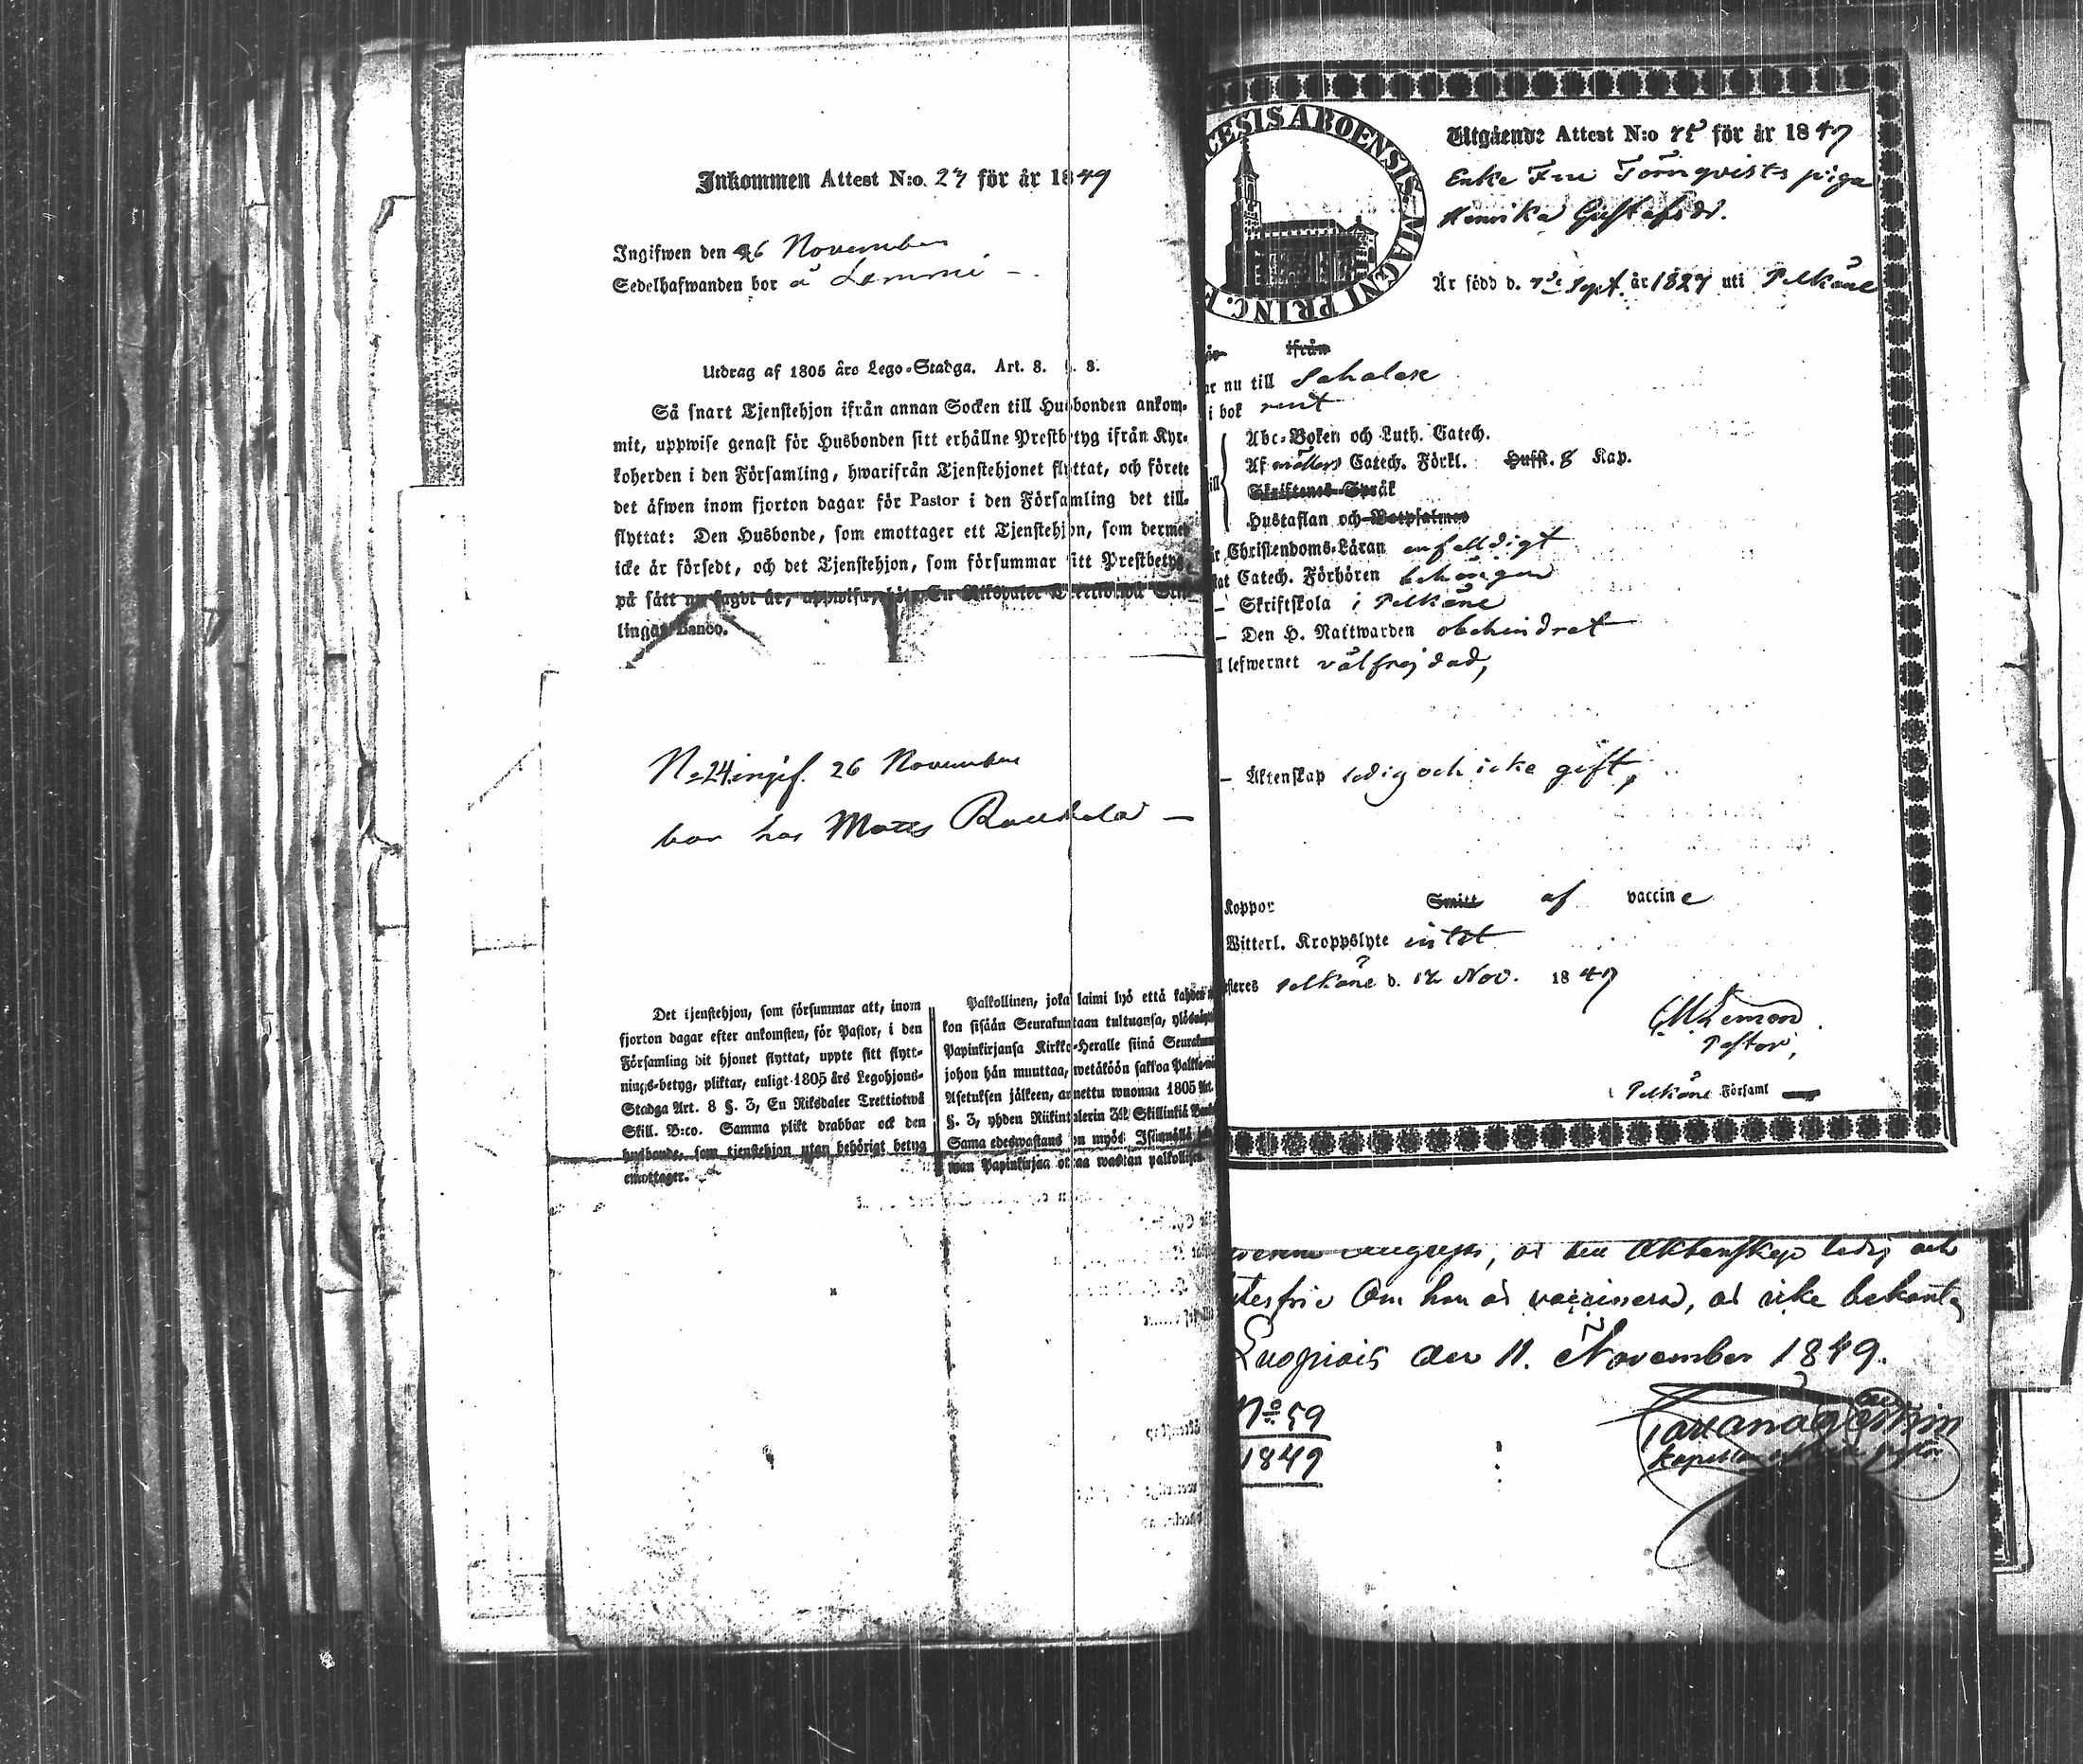 Inkommen Attest N:o. 27 för år 1849
Ingifwen den 26 November
Sedelhafwanden bor å Lemmi –
Utdrag af 1805 års Lego-Stadga. Art. 8. §. 3.
Så snart Tjenstehjon ifrån annan Socken till Husbonden ankom-
mit, uppwise genast för Husbonden sitt erhållne Prestbetyg ifrån Kyr-
koherden i den Församling, hwarifrån Tjenstehjonet flyttat, och förete
det äfwen inom fjorton dagar för Pastor i den Församling det till-
flyttat: Den Husbonde, som emottager ett Tjenstehjon, som dermed
icke är försedt, och det Tjenstehjon, som försummar sitt Prestbetyg
på sätt nu sagdt är, uppwisa, böte En Riksdaler Trettiotwå Skil-
lingar Banco.
N:o 24 ingif. 26 November
bor hos Matts Raukola –
Det tjenstehjon, som försummar att, inom
fjorton dagar efter ankomsten, för Pastor, i den
Församling dit hjonet flyttat, uppte sitt flytt-
nings-betyg, pliktar, enligt 1805 års Legohjons-
Stadga Art. 8 §. 3, En Riksdaler Trettiotwå
Skill. B:co. Samma plikt drabbar ock den
husbonde, som tjenstehjon utan behörigt betyg
emottager.
Palkollinen, joka laimi lyö että kahden
kon sisään Seurakuntaan tultuansa,
Papinkirjansa Kirkko-Heralle siinä
johon hän muuttaa, wetäköön sakkoa
Asetuksen jälkeen, annettu wuonna 1805 Art.
§. 3, yhden Riikintalerin 32 Skillinkiä
Sama edeswastaus on myös
wan Papinkirjaa ottaa wastan
CESIS ABOENSIS MAGNI PRINC. F
Utgående Attest N:o 75 för år 1849
Enke Fru Törnqvists piga
Henrika Gustafsdr.
Är född d. Sept. år 1827 uti Pelkäne
ifrån
nu till Sahalax
i bok rent
Abc-Boken och Luth. Catech.
Af Möllers Catech. Förkl. Husst. 8 Kap.
Skriftenes Språk
Hustaflan och Botpsalmer
Christendoms-Läran enfaldigt
Catech. Förhören behörigen
– Skriftskola i Pelkäne
– Den H. Nattwarden obehindrat
lefwernet välfrejdad,
– Äktenskap ledig och icke gift,
Koppor Smitt af vaccine
Witterl. Kroppslyte intet
Pelkäne d. 12 Nov. 1849
Pastor,
Pelkäne Församl
är den Äktenskap ledig och
Om han är vaccinerad, är icke bekant,
Luopiois den 11. November 1849.
N:o 59
1849